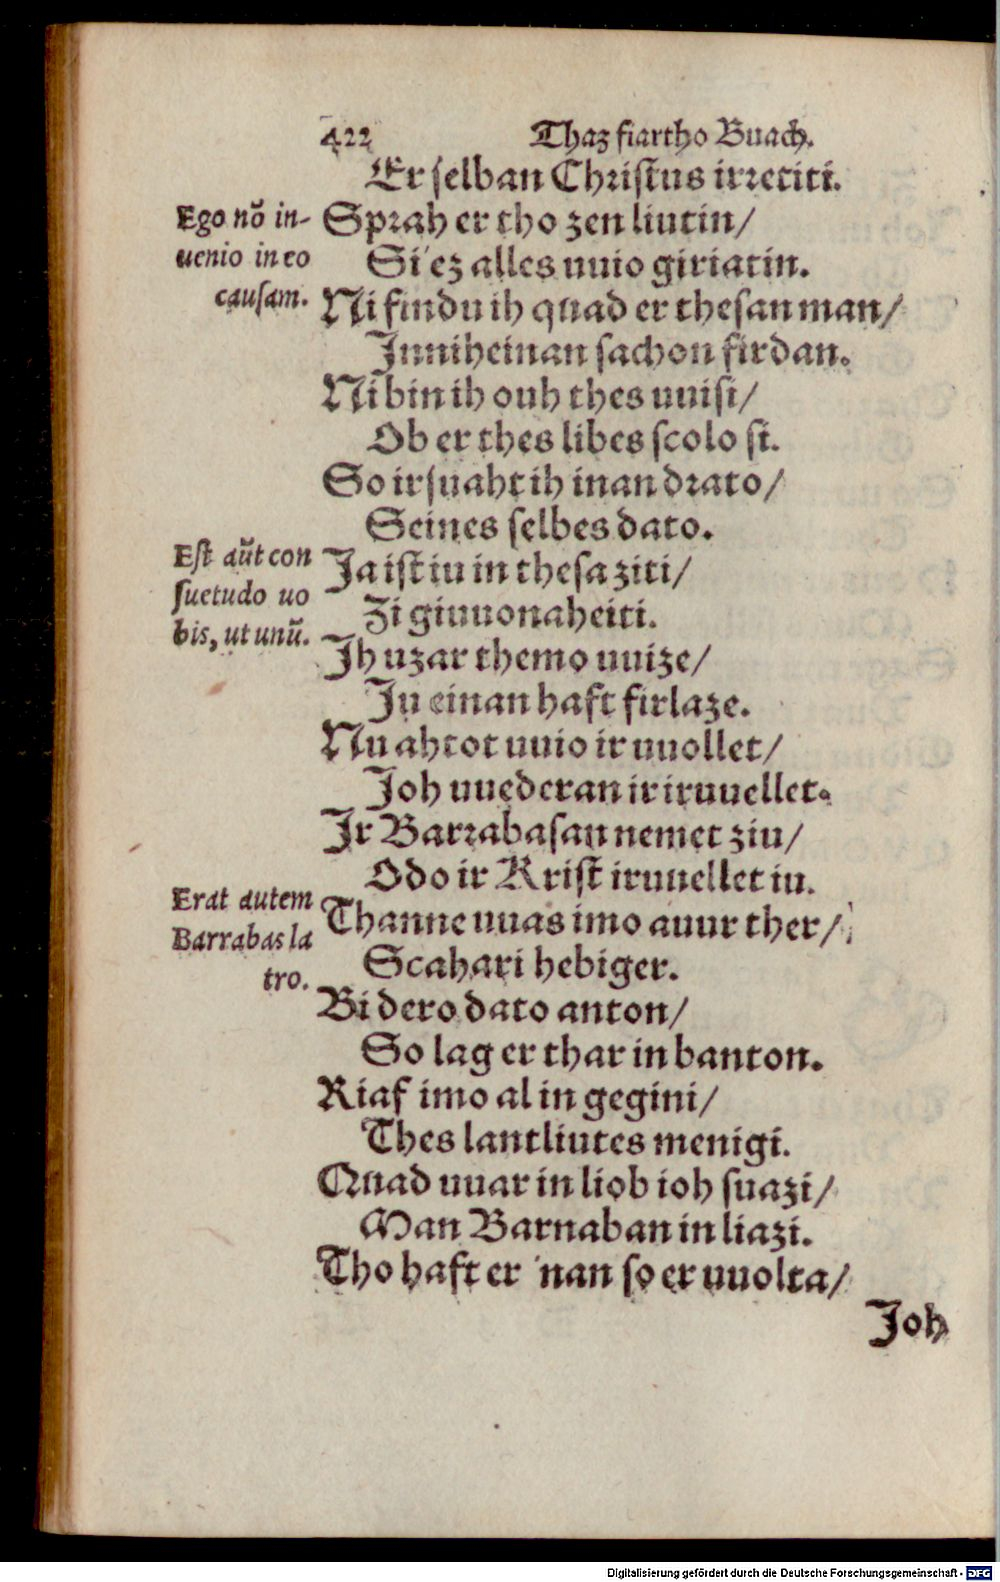 422 Thaz fiartho Buach.
Er selban Christus irretiti.
Sprah er tho zen liutin/
Si' ez alles uuio giriatin.
Ni findu ih quad er thesan man/
Inniheinan sachon firdan.
Ni bin ih ouh thes uuisi/
Ob er thes libes scolo si.
So irsuaht ih inan drato/
Seines selbes dato.
Ja ist iu in thesa ziti/
Zi giuuonaheiti.
Ih uzar themo uuize/
Iu einan haft firlaze.
Nu ahtot uuio ir uuollet/
Joh uuederan ir iruuellet.
Ir Barrabasan nemet ziu/
Odo ir Krist iruuellet iu.
Thanne uuas imo auur ther/
Scahari hebiger.
Bi dero dato anton/
So lag er thar in banton.
Riaf imo al in gegini/
Thes lantliutes menigi.
Quad uuar in liob ioh suazi/
Man Barnaban in liazi.
Tho haft er 'nan so er uuolta/
Joh
Ego nõ in-
uenio in eo
causam.
Est aũt con
suetudo uo
bis, ut unũ.
Erat autem
Barrabas la
tro.
Digitalisierung gefördert durch die Deutsche Forschungsgemeinschaft - DFG